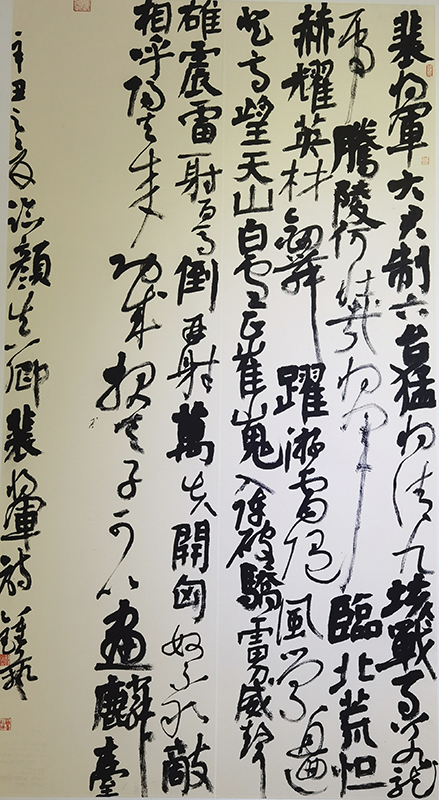 裴将軍大君制六合猛将清九垓戰馬若龍
虎騰陵何壯哉将軍臨北荒烜
赫耀英材劍舞躍游電随風縈且迴
登高望天山白雪正崔嵬入陣破驕虜威聲
雄震雷一射百馬倒再射萬夫開匈奴不敢敵
相呼歸去來功成報天子可以畫麟臺
辛丑之夏臨顏真卿裴将軍詩